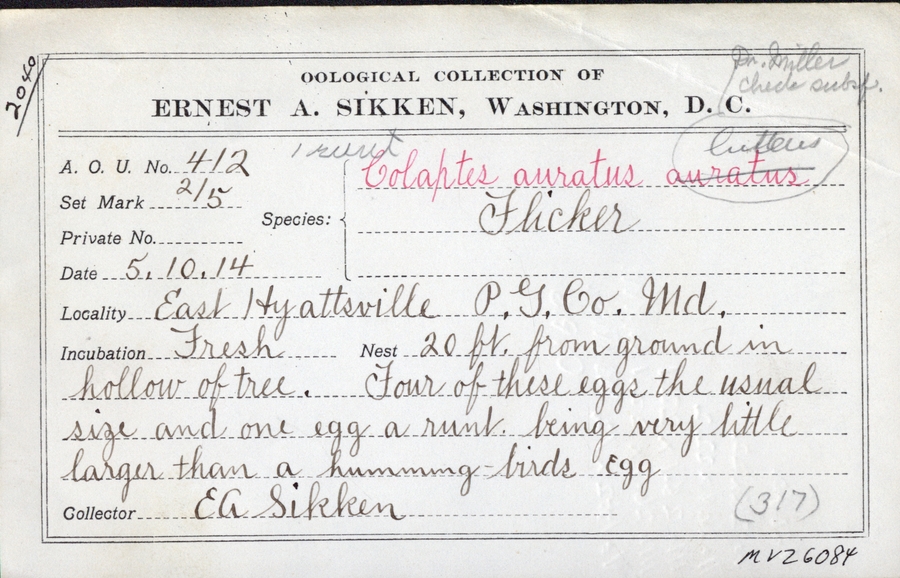 2040
Dr. Miller
check subsp.
OOLOGICAL COLLECTION OF
ERNEST A. SIKKEN, WASHINGTON, D. C.
1 runt
luteus
A. O. U. No. 412
Set Mark 2/5
Private No.
Date 5.10.14
Species: Colaptes auratus auratus
Flicker
Locality East Hyattsville P. G. Co. Md.
Incubation Fresh Nest 20 ft. from ground in
hollow of tree. Four of these eggs the usual
size and one egg a runt. being very little
larger than a humming-birds egg
Collector EA Sikken
(317)
MVZ6084